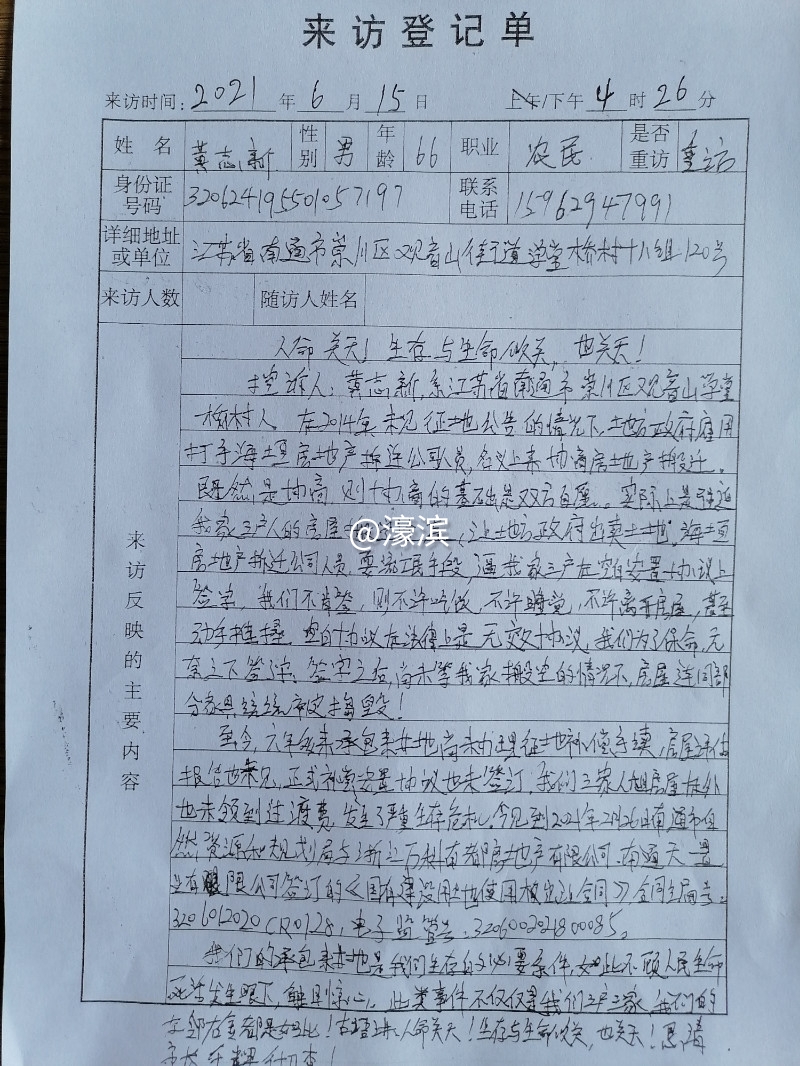 来访登记单
来访时间: 2021 年 6 月 15 日 上午/下午 4 时 26 分
姓名 黄志新 性别 男 年龄 66 职业 农民 是否重访 重访
身份证号码 320624195501057197 联系电话 15962947991
详细地址或单位 江苏省南通市崇川区观音山街道学堂桥村十八组120号
来访人数 随访人姓名
来访反映的主要内容
人命关天!生存与生命攸关,也关天!
控诉人:黄志新,系江苏省南通市崇川区观音山学堂
桥村人。在2014年未见征地公告的情况下,土地方政府雇用
打手海垣房地产拆迁公司人员,名义上来协商房地产搬迁。
既然是协商,则协商的基础是双方自愿。实际上是强迫
我家三户人的房屋 @濠滨 ,让地方政府出卖土地。海垣
房地产拆迁公司人员,耍流氓手段,逼我家三户在空白安置协议上
签字,我们不肯签,则不许吃饭,不许睡觉,不许离开房屋,甚至
动手推搡。空白协议在法律上是无效协议,我们为了保命,无
奈之下签字。签字之后,尚未等我家搬空的情况下,房屋连同部
分家具统统被捣毁!
至今,六年多来承包耒地尚未办理征地补偿手续,房屋评估
报告也未见,正式补偿安置协议也未签订,我们三家人租房屋在外
也未领到过渡费,发生了严重生存危机。今见到2021年2月26日南通市自
然资源和规划局与浙江万科南都房地产有限公司、南通天
业有限公司签订的《国有建设用地使用权出让合同》,合同编号:
3206012020CR0128,电子监管号:3206002021800085。
我们的承包耒地是我们生存的必要条件,如此不顾人民生命
死活发生眼下,触目惊心,此类事件不仅仅是我们三户三家,我们的
左邻右舍都是如此!古墙讲:人命关天!生存与生命攸关,也关天!恳请